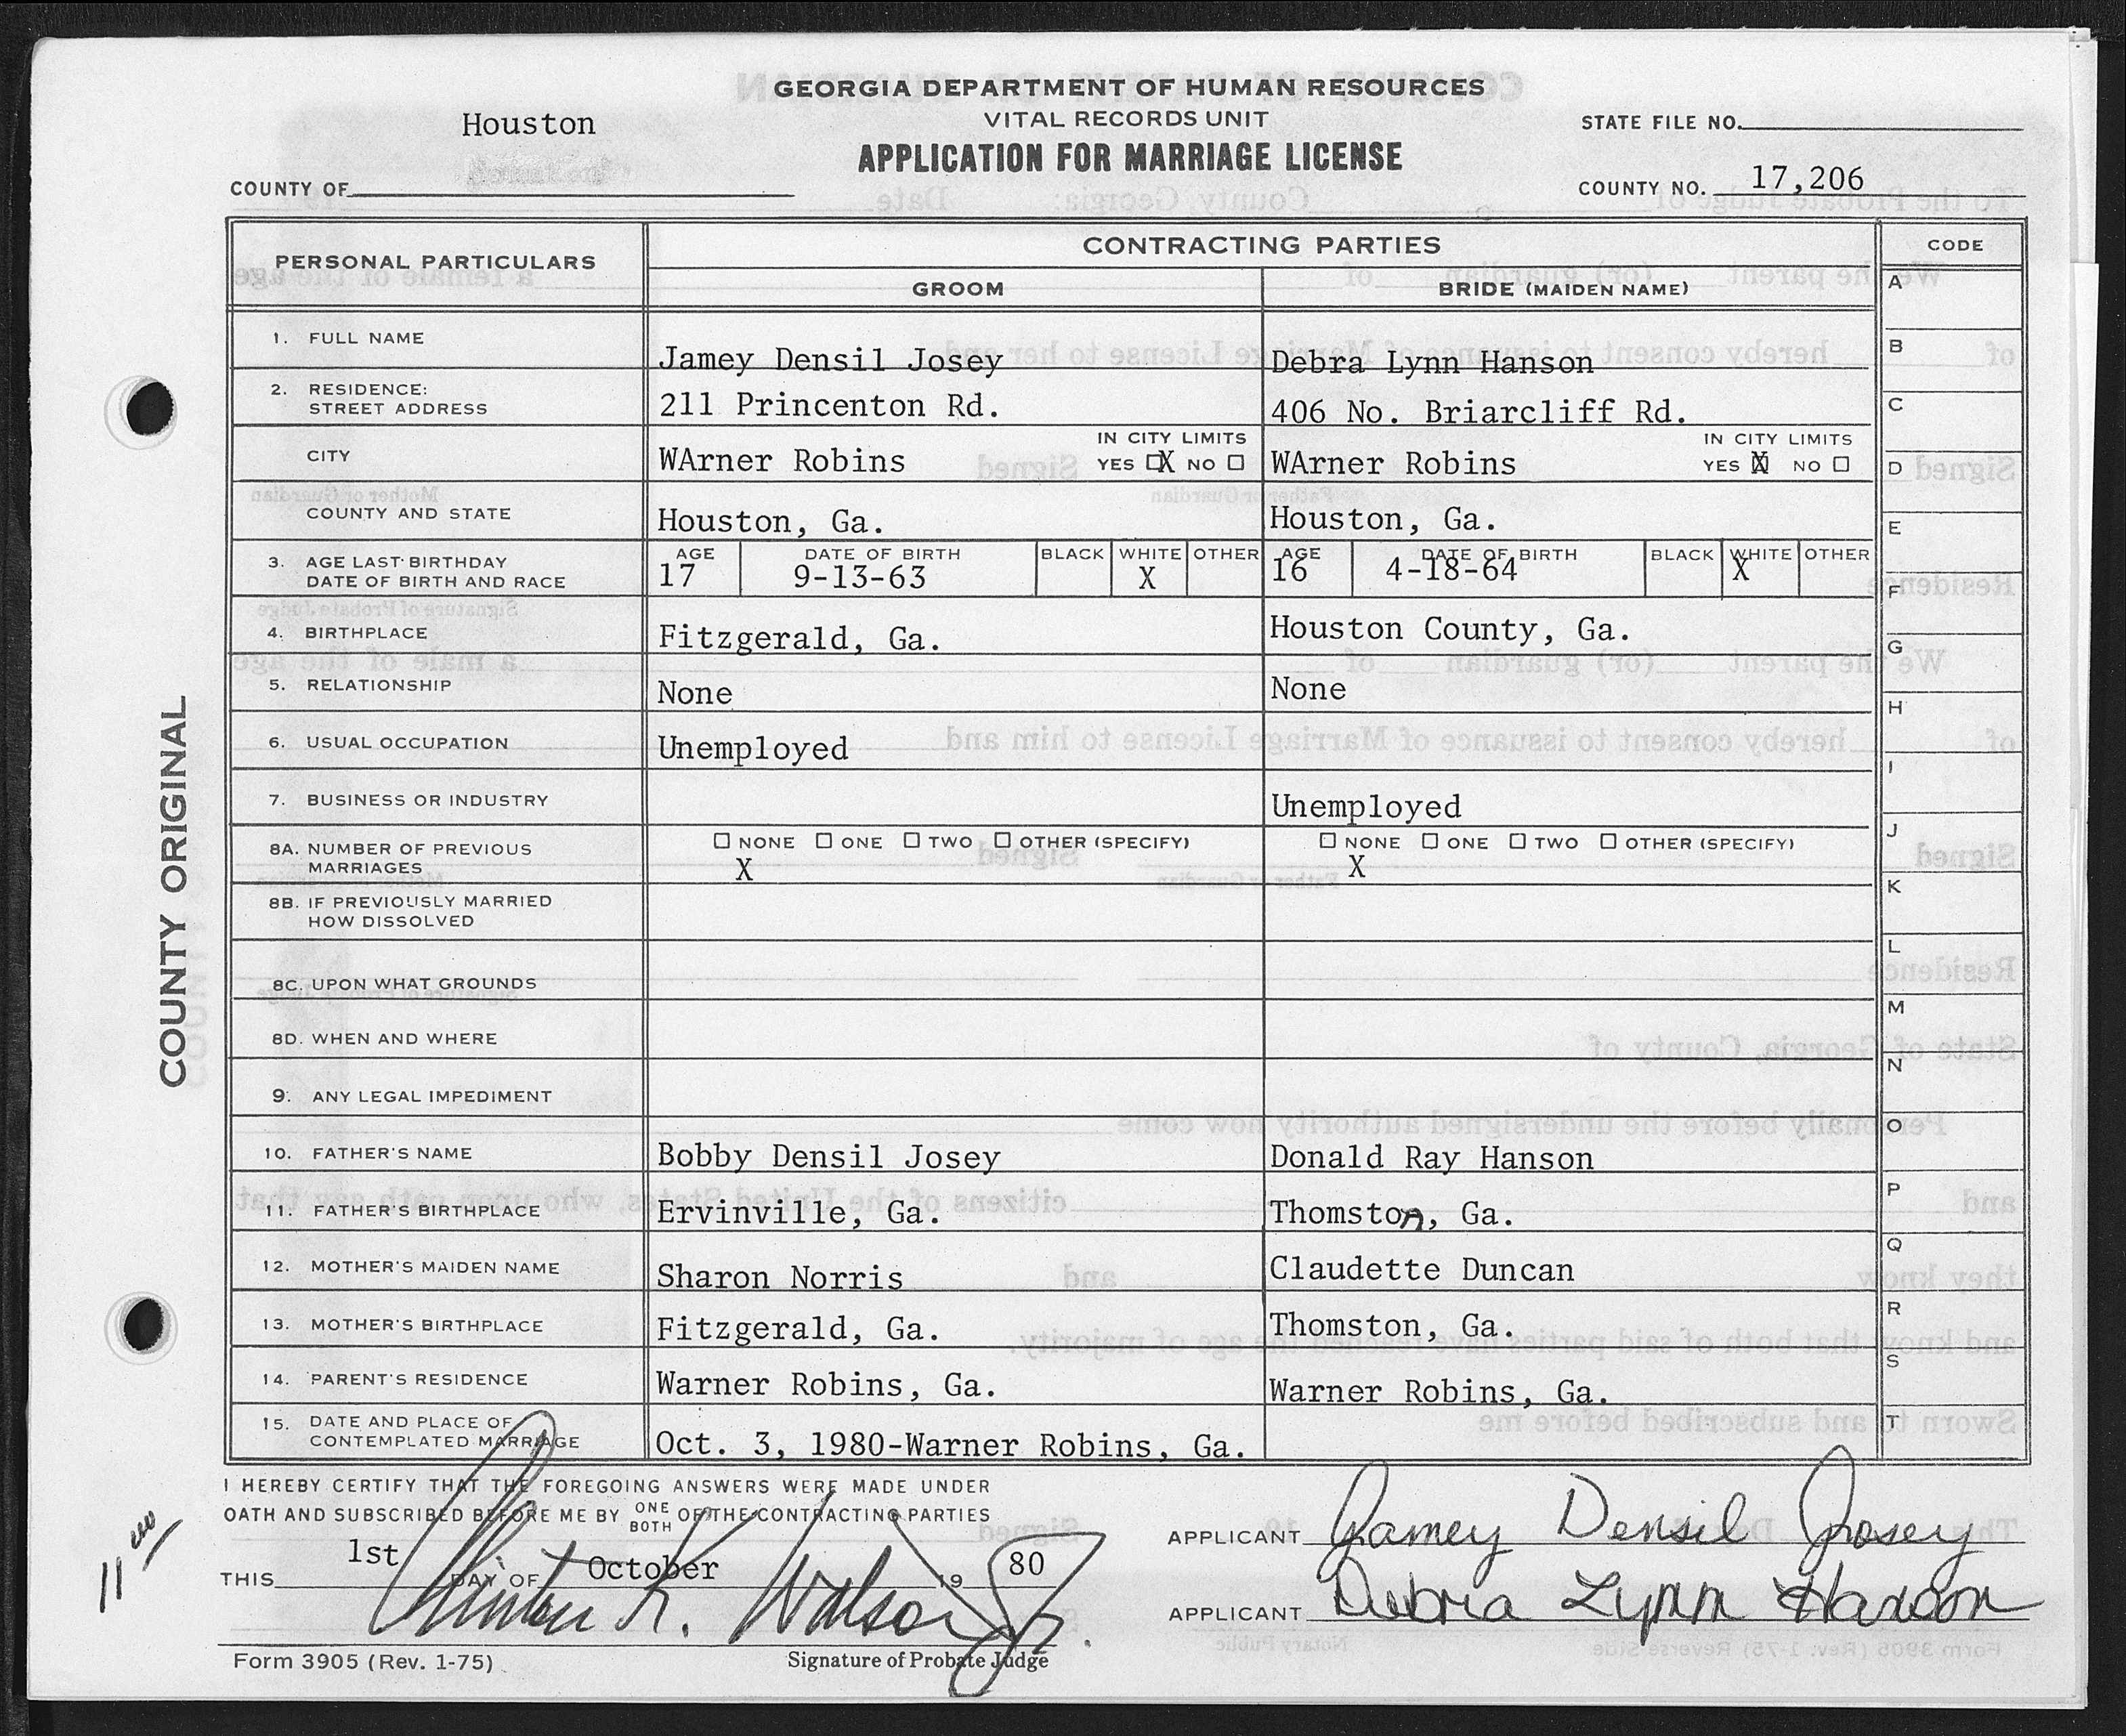 GEORGIA DEPARTMENT OF HUMAN RESOURCES
VITAL RECORDS UNIT
APPLICATION FOR MARRIAGE LICENSE
Houston
COUNTY OF
STATE FILE NO.
COUNTY NO. 17,206
PERSONAL PARTICULARS
CONTRACTING PARTIES
CODE
GROOM
BRIDE (MAIDEN NAME)
1. FULL NAME Jamey Densil Josey Debra Lynn Hanson
2. RESIDENCE:
STREET ADDRESS 211 Princenton Rd. 406 No. Briarcliff Rd.
CITY WArner Robins IN CITY LIMITS YES ☐X NO ☐ WArner Robins IN CITY LIMITS YES ☒ NO ☐
COUNTY AND STATE Houston, Ga. Houston, Ga.
3. AGE LAST BIRTHDAY AGE DATE OF BIRTH BLACK WHITE OTHER AGE DATE OF BIRTH BLACK WHITE OTHER
DATE OF BIRTH AND RACE 17 9-13-63 X 16 4-18-64 X
4. BIRTHPLACE Fitzgerald, Ga. Houston County, Ga.
5. RELATIONSHIP None None
6. USUAL OCCUPATION Unemployed
7. BUSINESS OR INDUSTRY Unemployed
8A. NUMBER OF PREVIOUS ☐ NONE ☐ ONE ☐ TWO ☐ OTHER (SPECIFY) ☐ NONE ☐ ONE ☐ TWO ☐ OTHER (SPECIFY)
MARRIAGES X X
8B. IF PREVIOUSLY MARRIED
HOW DISSOLVED
8C. UPON WHAT GROUNDS
8D. WHEN AND WHERE
9. ANY LEGAL IMPEDIMENT
10. FATHER'S NAME Bobby Densil Josey Donald Ray Hanson
11. FATHER'S BIRTHPLACE Ervinville, Ga. Thomston, Ga.
12. MOTHER'S MAIDEN NAME Sharon Norris Claudette Duncan
13. MOTHER'S BIRTHPLACE Fitzgerald, Ga. Thomston, Ga.
14. PARENT'S RESIDENCE Warner Robins, Ga. Warner Robins, Ga.
15. DATE AND PLACE OF
CONTEMPLATED MARRIAGE Oct. 3, 1980-Warner Robins, Ga.
A
B
C
D
E
F
G
H
I
J
K
L
M
N
O
P
Q
R
S
T
COUNTY ORIGINAL
I HEREBY CERTIFY THAT THE FOREGOING ANSWERS WERE MADE UNDER
OATH AND SUBSCRIBED BEFORE ME BY ONE BOTH OF THE CONTRACTING PARTIES
THIS 1st DAY OF October 19 80
K. Watson Jr.
Signature of Probate Judge
Form 3905 (Rev. 1-75)
APPLICANT Jamey Densil Josey
APPLICANT Debra Lynn Hanson